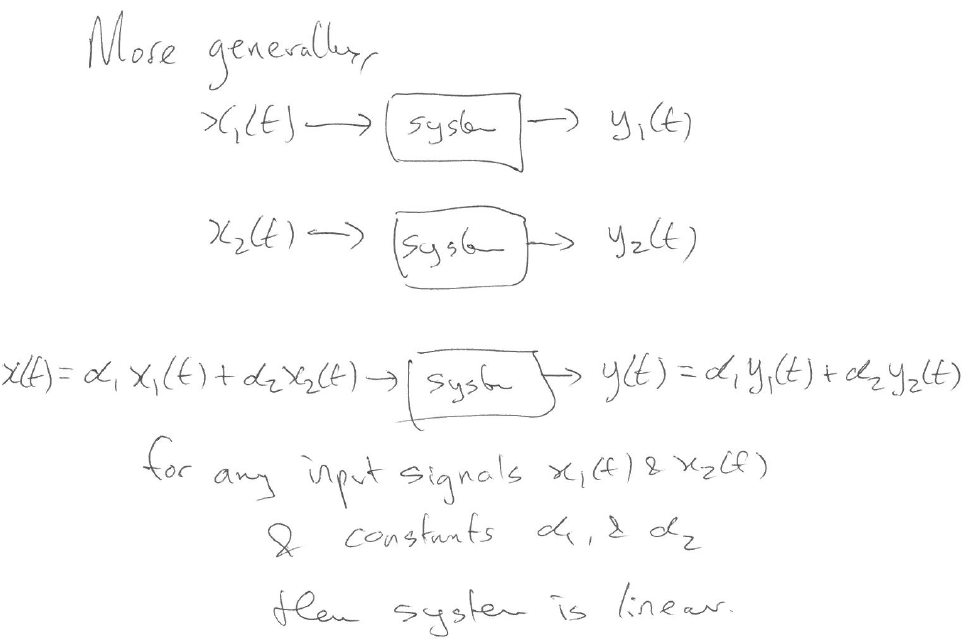 More generally,
x₁(t) → system → y₁(t)
x₂(t) → system → y₂(t)
x(t) = α₁ x₁(t) + α₂ x₂(t) → system → y(t) = α₁ y₁(t) + α₂ y₂(t)
for any input signals x₁(t) & x₂(t)
& constants α₁, & α₂
then system is linear.